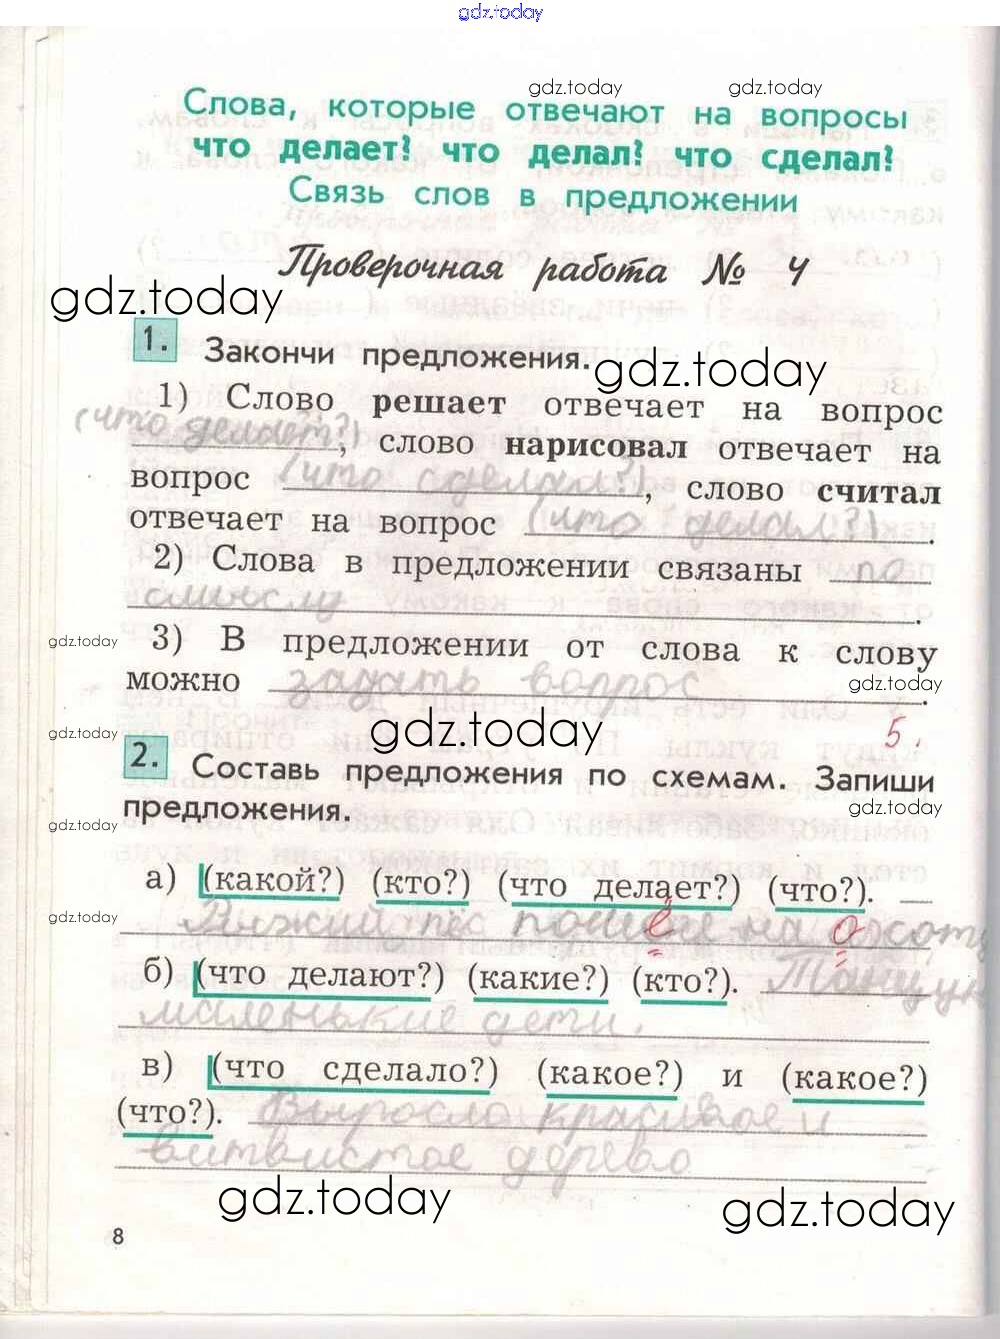 gdz.today
gdz.today gdz.today
Слова, которые отвечают на вопросы
что делает? что делал? что сделал?
Связь слов в предложении
Проверочная работа № 4
gdz.today
1. Закончи предложения.
gdz.today
1) Слово решает отвечает на вопрос
(что делает?), слово нарисовал отвечает на
вопрос (что сделал?), слово считал
отвечает на вопрос (что делал?).
2) Слова в предложении связаны по
смыслу.
gdz.today
3) В предложении от слова к слову
можно задать вопрос.
gdz.today
gdz.today
gdz.today
5.
2. Составь предложения по схемам. Запиши
предложения.
gdz.today
gdz.today
а) (какой?) (кто?) (что делает?) (что?).
gdz.today
Рыжий пёс на
е о
б) (что делают?) (какие?) (кто?). Танцуют
маленькие дети.
в) (что сделало?) (какое?) и (какое?)
(что?). Выросло красивое и
витвистое дерево
gdz.today
gdz.today
8